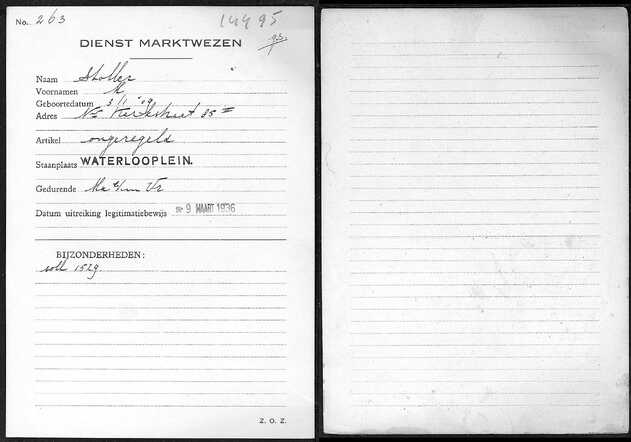 No. 263 14495
DIENST MARKTWEZEN
Naam Stoller
Voornamen M
Geboortedatum 3/1 '09
Adres Nwe Kerkstraat 35 III
Artikel ongeregeld
Staanplaats WATERLOOPLEIN.
Gedurende Ma t/m Vr
Datum uitreiking legitimatiebewijs 9 MAART 1936
BIJZONDERHEDEN:
voll 1529.
Z. O. Z.